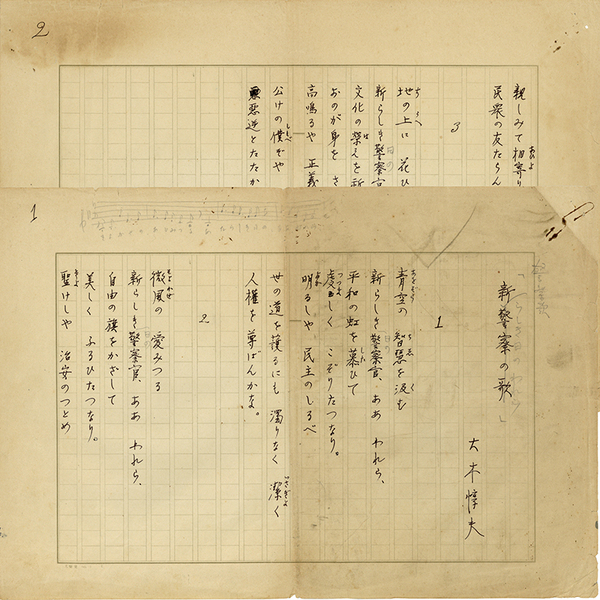 1
新警察の歌
大木惇夫
1
青空の 智慧を汲む
新らしき警察官、ああ われら、
平和の虹を慕ひて
虔しく こぞりたつなり。
明るしや 民主のしるべ
世の道を護るにも 濁りなく 潔く
人権を尊ばんかな。
2
微風の 愛みつる
新らしき警察官、ああ われら、
自由の旗をかざして
美しく ふるひたつなり。
聖けしや 治安のつとめ
2
親しみて相寄り
民衆の友たらん
3
地の上に 花ひ
新らしき警察官
文化の栄えを
おのが身を さ
高鳴るや 正義
公けの僕ぞや
悪逆とたたか